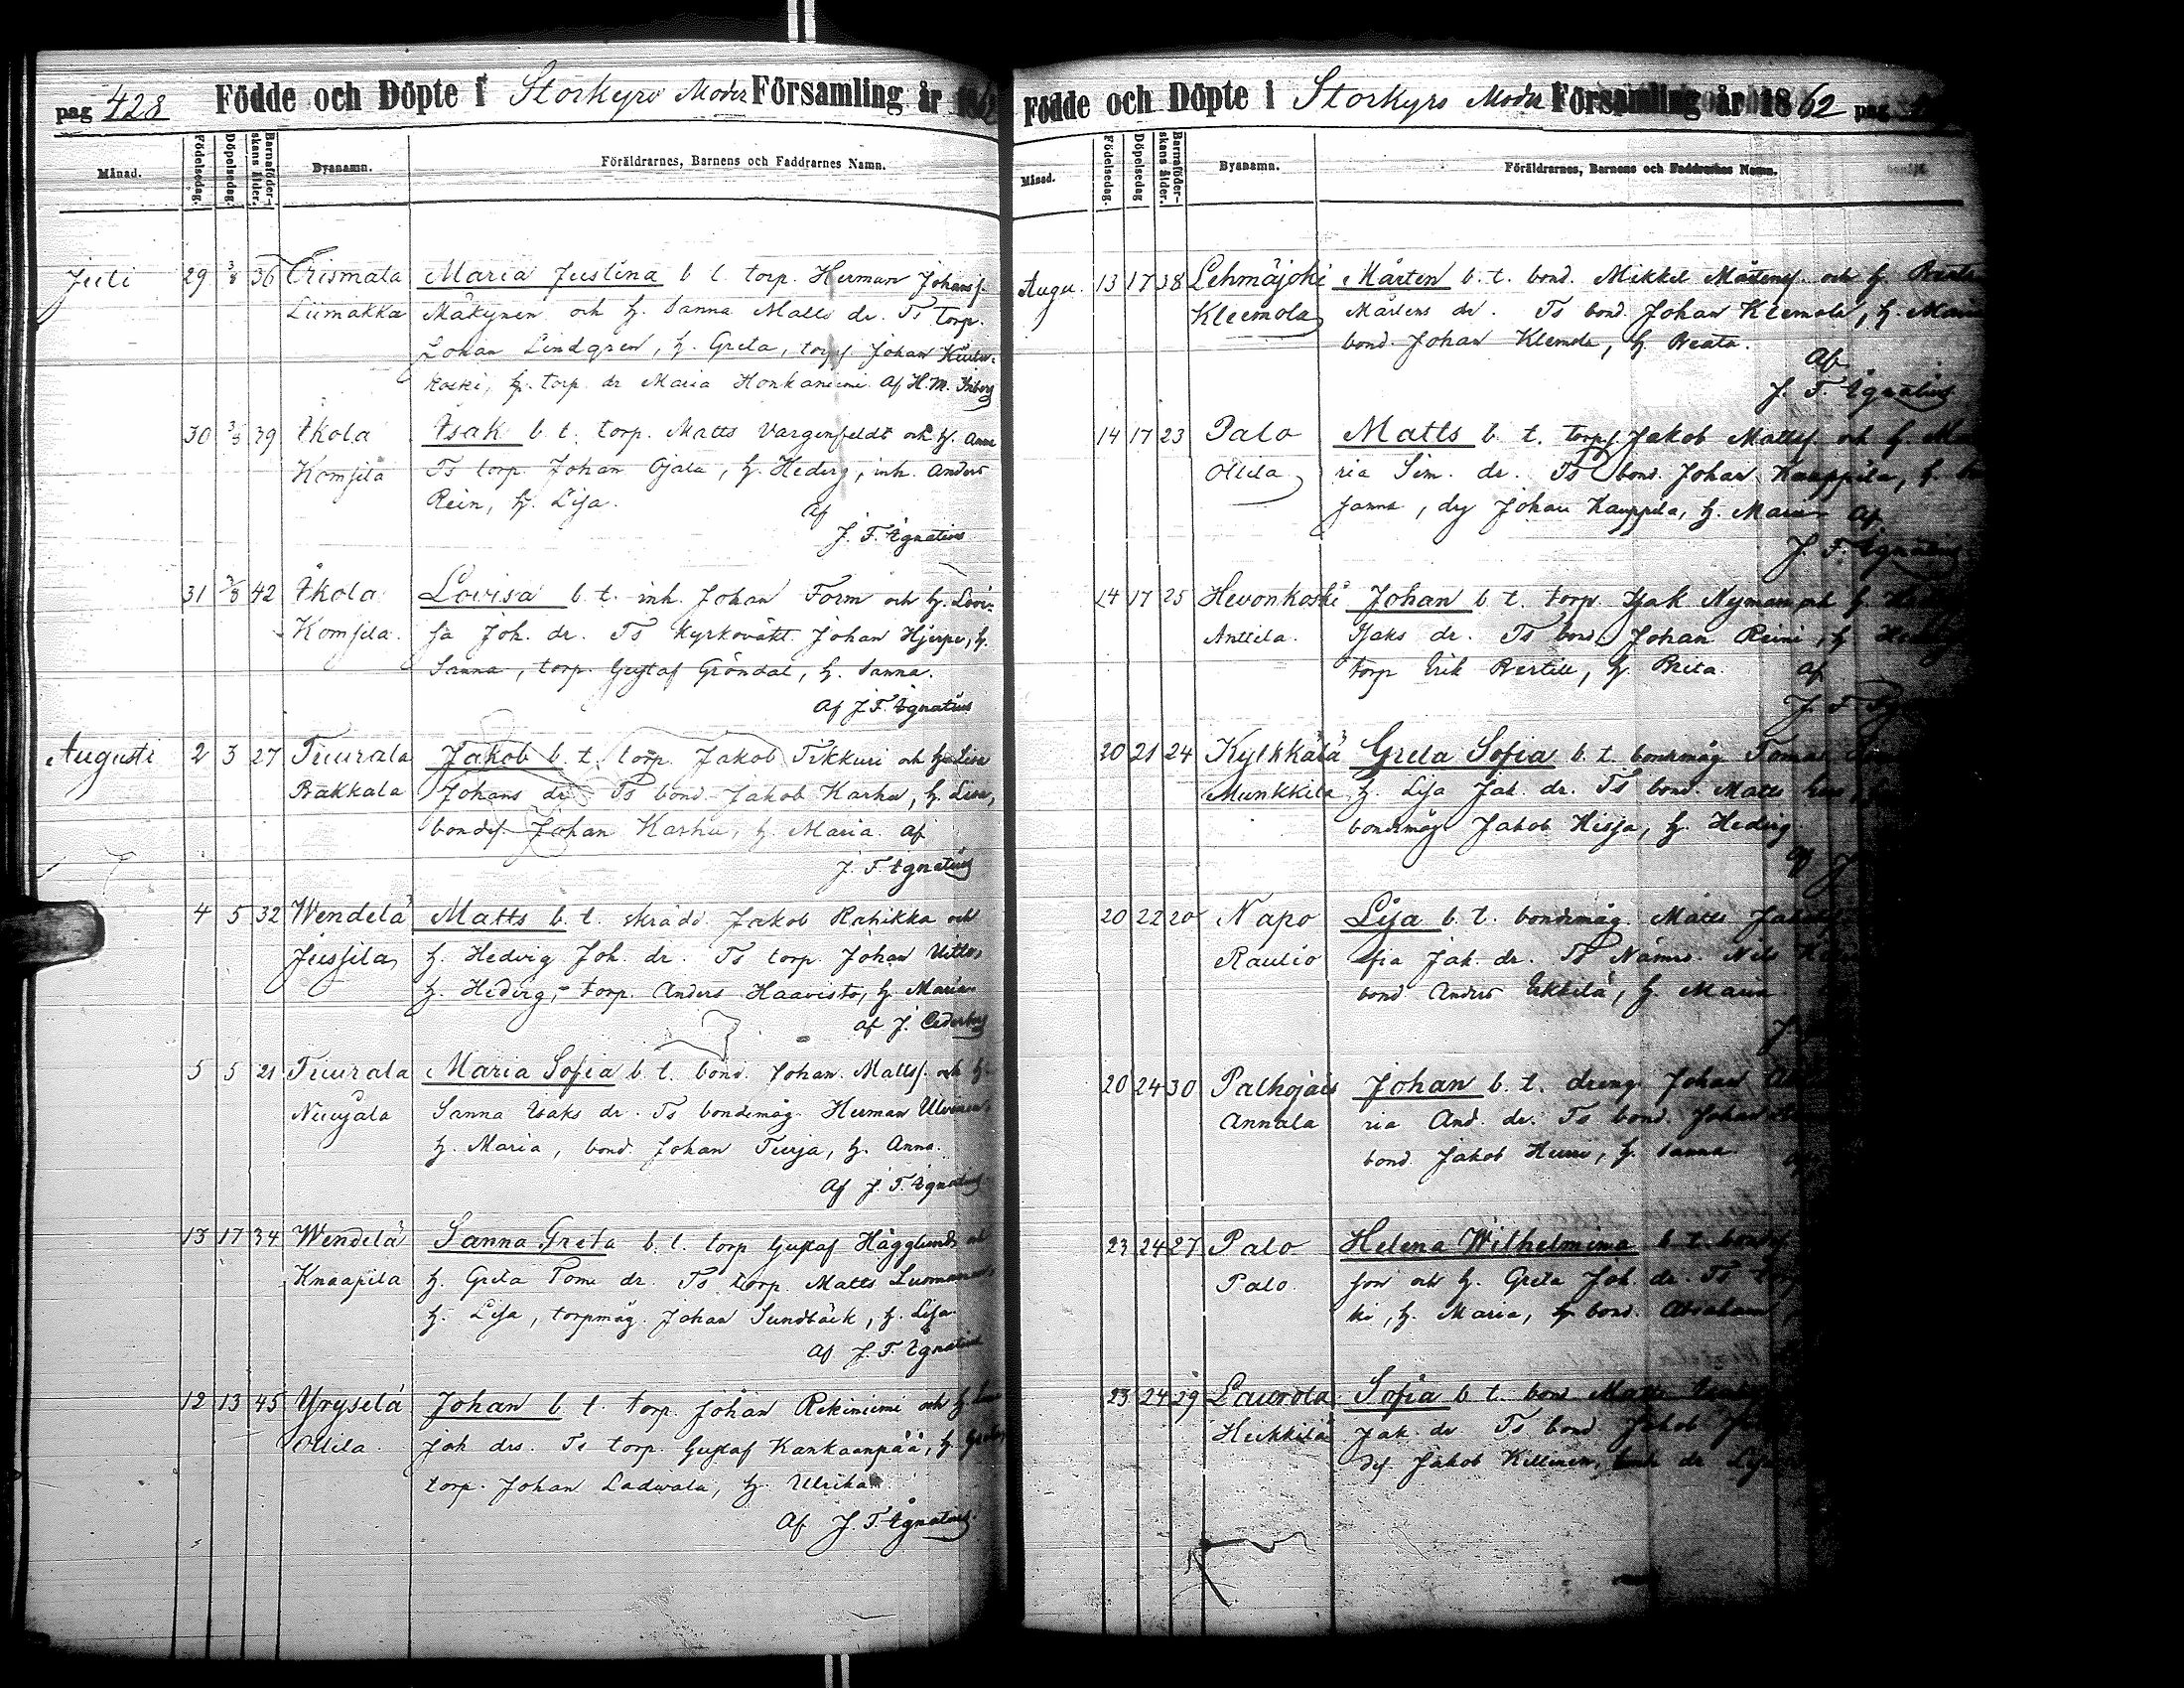 pag 428 Födde och Döpte i Storkyro Moder Församling år 1862
Månad. Födelsedag. Döpelsedag. Barnaföderskans ålder. Byanamn. Föräldrarnes, Barnens och Faddrarnes Namn.
Juli 29 3/8 36 Orismala Maria Justina b. t. torp. Herman Johanss.
Liimakka Mäkynen och h. Sanna Matts dr. Ts torp.
Johan Lindgren, h. Greta, torps Johan
koski, torp. dr Maria Honkaniemi Af H. M.
30 3/8 39 Ikola Isak b. t. torp. Matts Vargenfeldt och h. Anna
Komsila Ts torp. Johan Ojala, h. Hedvig, inh. Anders
Rein, h. Lisa. Af
J. F. Ignatius
31 3/8 42 Ikola Lovisa b. t. inh. Johan Form och h. Lovi-
Komsila. sa Joh. dr. Ts Kyrkoväkt. Johan Hjerpe, h.
Sanna, torp. Gustaf Gröndal, h. Sanna.
Af J. F. Ignatius
Augusti 2 3 27 Tuurala Jakob b. t. torp. Jakob Tikkuri och h. Lisa
Bakkala Johans dr. Ts bond. Jakob Karhu, h. Lisa,
bonds. Johan Karhu, h. Maria. af
J. F. Ignatius
4 5 32 Wendelä Matts b. t. skrädd. Jakob Rahikka och
Jussila h. Hedvig Joh. dr. Ts torp. Johan Uitto,
h. Hedvig, torp. Anders Haavisto, h. Maria
af J. Cederberg
5 5 21 Tuurala Maria Sofia b. t. bond. Johan Matts. och h.
Niiujala Sanna Isaks dr. Ts bondemåg Herman
h. Maria, bond. Johan Turja, h. Anna.
Af J. F. Ignatius
13 17 34 Wendelä Sanna Greta b. t. torp Gustaf Hägglund och
Knaapila h. Greta Tom. dr. Ts torp. Matts
h. Lisa, torpmåg. Johan Sundbäck, h. Lisa.
Af J. F. Ignatius
12 13 45 Yryselä Johan b. t. torp. Johan Rekiniemi och h.
Ollila. Joh. drs. Ts torp. Gustaf Kankaanpää, h. Greta,
torp. Johan Ladvala, h. Ulrika.
Af J. F. Ignatius.
Födde och Döpte i Storkyro Moder Församling år 1862 pag
Månad. Födelsedag. Döpelsedag Barnaföderskans ålder. Byanamn. Föräldrarnes, Barnens och Faddrarnes Namn.
Augu. 13 17 38 Lehmäjoki Mårten b. t. bond. Mikkel Mårtens. och h. Beata
Kleemola Mårtens dr. Ts bond. Johan Klemola, h. Maria
bond. Johan Klemola, h. Beata.
Af
J. F. Ignatius
14 17 23 Palo Matts b. t. torps. Jakob Matts. och h. Ma
Ollila ria Sim. dr. Ts bond. Johan Kauppila, h.
sanna, drg Johan Kauppila, h. Maria Af
J. F. Ignatius
14 17 25 Hevonkoski Johan b. t. torp. Isak Nyman och h.
Anttila. Isaks dr. Ts bond. Johan Reini, h. Hedvig
torp Erik Bertill, h. Brita. af
J. F.
20 21 24 Kylkkälä Greta Sofia b. t. bondemåg Tomas
Munkkila h. Lisa Jak. dr. Ts bond. Matts
bondemåg Jakob Hissa, h. Hedvig
af J
20 22 20 Napo Lisa b. t. bondemåg. Matts
Raulio fia Jak. dr. Ts Nämd. Nils
bond Anders Erkkilä, h. Maria
J.
20 24 30 Palhojais Johan b. t. dreng Johan
Annala ria And. dr. Ts bond. Johan
bond Jakob Huuri, h. Sanna. af
23 24 27 Palo Helena Wilhelmina b. t. bonds.
Palo. son och h. Greta Joh. dr. Ts
ki, h. Maria, bond. Abraham
23 24 29 Laurola Sofia b. t. bond Matts
Heikkilä Jak. dr Ts bond. Jakob
ds. Jakob Killinen, dr Lisa